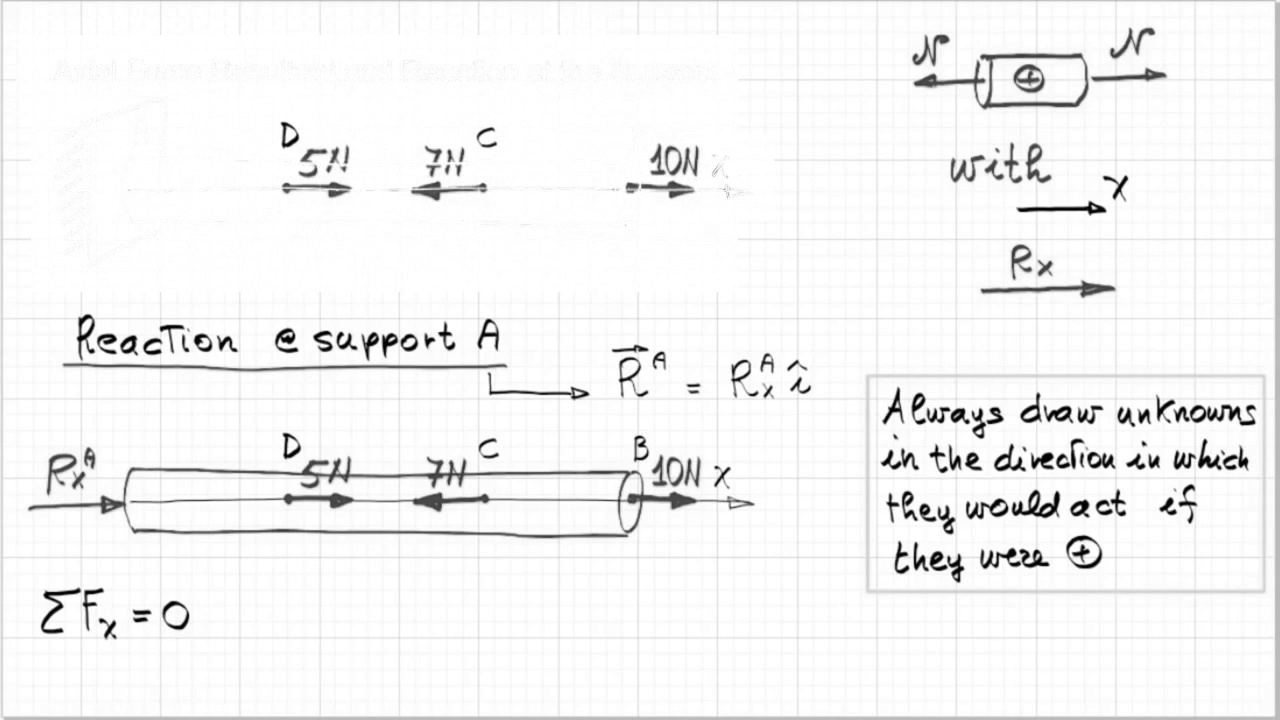 Axial Force Resultant and Reaction at the Support
D 5N 7N C 10N x
N ⊕ N
with
x
Rx
Reaction @ support A
R^A = R_x^A î
Always draw unknowns
in the direction in which
they would act if
they were ⊕
R_x^A D 5N 7N C B 10N x
ΣF_x = 0